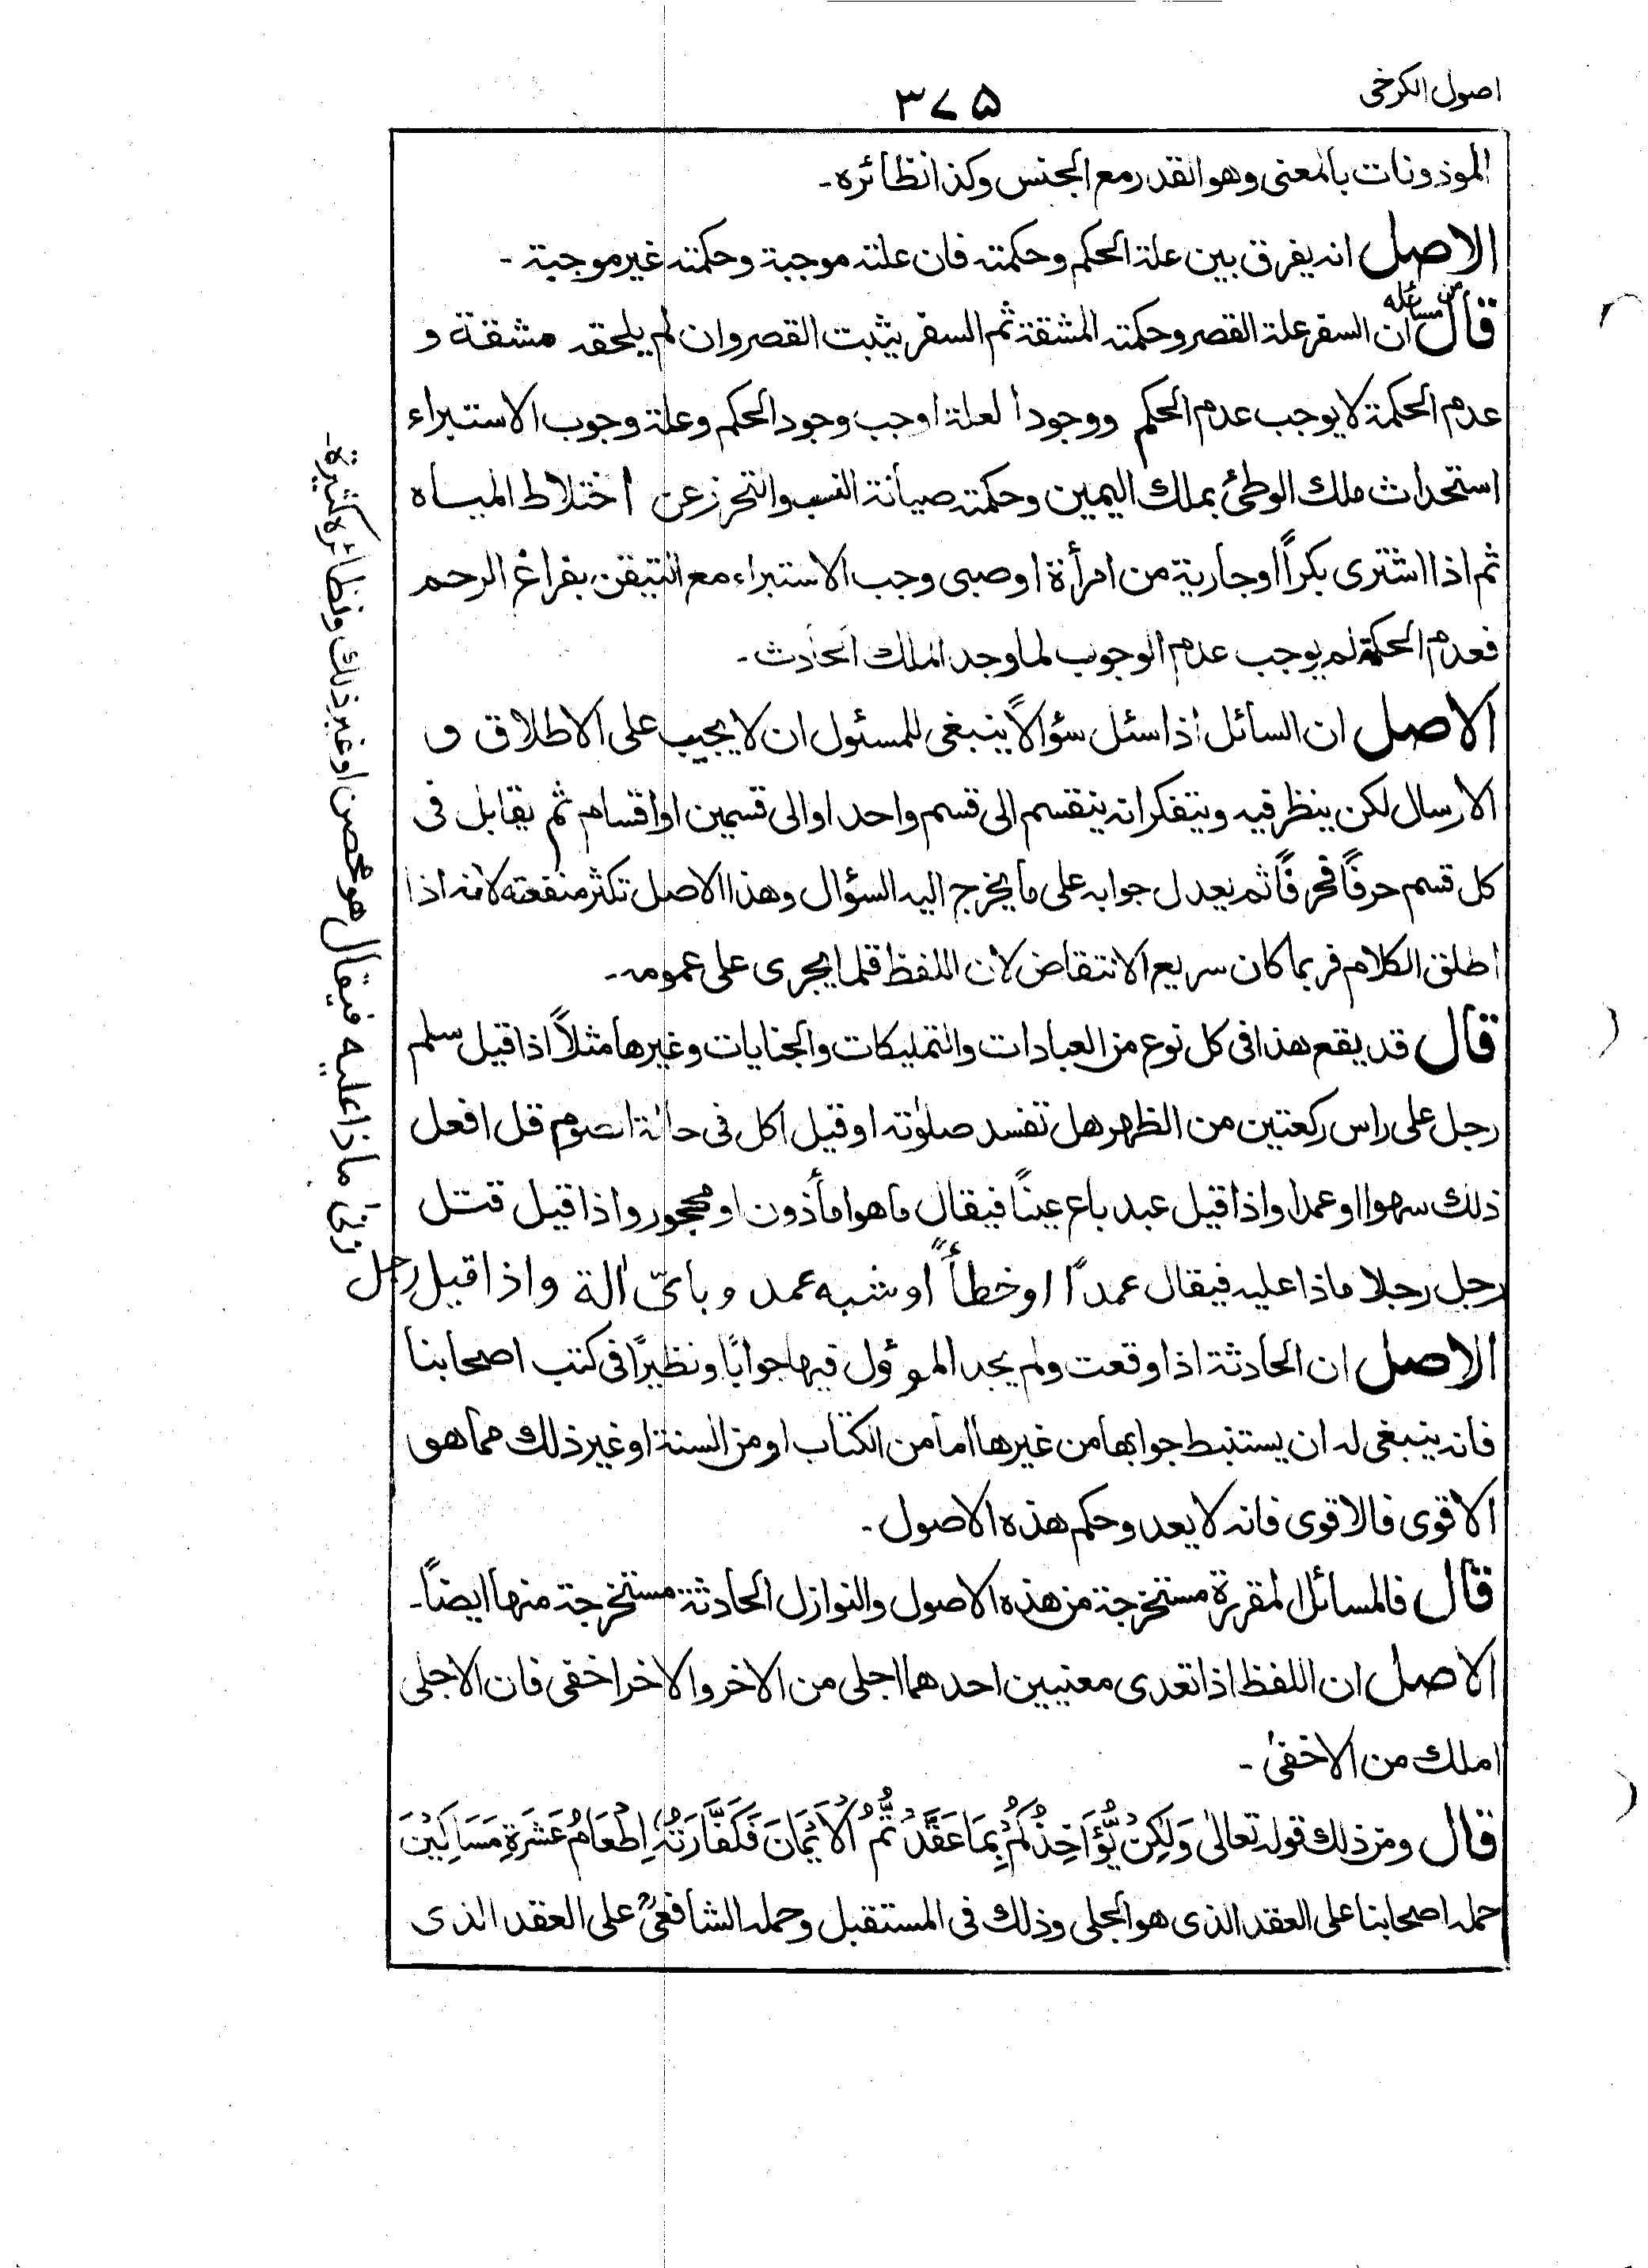 اصول الكرخى
۳۷۵
الموذونات بالمعنى وهو القدر مع الجنس وكذا نظائره ۔
الاصل انه يفرق بين علة الحكم وحكمته فان علته موجبة وحكمته غير موجبة ۔
قال من مسائله ان السفر علة القصر وحكمته المشقة ثم السفر يثبت القصر وان لم يلحقه مشقة و
عدم الحكمة لا يوجب عدم الحكم ووجود العلة اوجب وجود الحكم وعلة وجوب الاستبراء
استحداث ملك الوطئ بملك اليمين وحكمته صيانة النسب والتحرز عن اختلاط المياه
ثم اذا اشترى بكراً او جارية من امرأة او صبى وجب الاستبراء مع التيقن بفراغ الرحم
فعدم الحكمة لم يوجب عدم الوجوب لما وجد الملك الحادث ۔
الاصل ان السائل اذا سئل سؤالاً ينبغى للمسئول ان لا يجيب على الاطلاق و
الارسال لكن ينظر فيه ويتفكر انه ينقسم الى قسم واحد او الى قسمين او اقسام ثم يقابل فى
كل قسم حرفاً فحرفاً ثم يعدل جوابه على ما يخرج اليه السؤال وهذا الاصل تكثر منفعته لانه اذا
اطلق الكلام فربما كان سريع الانتقاض لان اللفظ قلما يجرى على عمومه ۔
قال قد يقع هذا فى كل نوع من العبادات والتمليكات والجنايات وغيرها مثلاً اذا قيل سلم
رجل على راس ركعتين من الظهر هل تفسد صلوٰته او قيل اكل فى حالة الصوم قل افعل
ذلك سهوا او عمدا واذا قيل عبد باع عيناً فيقال ما هو امأذون او محجور واذا قيل قتل
رجل رجلا ماذا عليه فيقال عمداً او خطأً او شبه عمد و باىّ اٰلة واذا قيل رجل
زنىٰ ماذا عليه فيقال هو محصن او غير ذلك ونظائره كثيرة ۔
الاصل ان الحادثة اذا وقعت ولم يجد المؤول فيها جوابًا ونظيرًا فى كتب اصحابنا
فانه ينبغى له ان يستنبط جوابها من غيرها اما من الكتاب او من السنة او غير ذلك مما هو
الاقوى فالاقوى فانه لا يعدو حكم هذه الاصول ۔
قال فالمسائل المقررة مستخرجة من هذه الاصول والنوازل الحادثة مستخرجة منها ايضاً ۔
الاصل ان اللفظ اذا تعدى معنيين احدهما اجلى من الاخر والاخر اخفى فان الاجلى
املك من الاخفىٰ ۔
قال ومن ذلك قوله تعالىٰ وَلٰكِنْ يُّؤَاخِذُكُمْ بِمَا عَقَّدْتُّمُ الْاَيْمَانَ فَكَفَّارَتُهٗ اِطْعَامُ عَشَرَةِ مَسَاكِيْنَ
حمله اصحابنا على العقد الذى هو الجلى وذلك فى المستقبل وحمله الشافعىؒ على العقد الذى